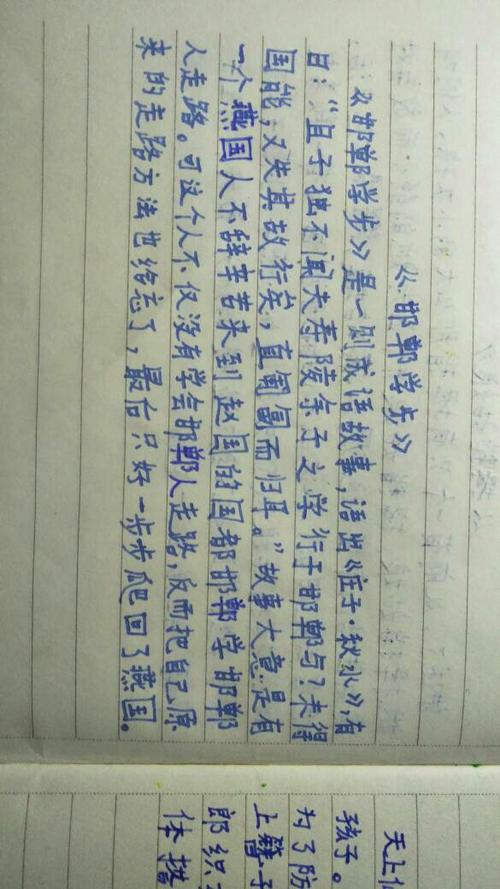 《邯郸学步》
《邯郸学步》是一则成语故事，语出《庄子·秋水》，有
曰：“且子独不闻夫寿陵余子之学行于邯郸与？未得
国能，又失其故行矣，直匍匐而归耳。”故事大意是有
一个燕国人不辞辛苦来到赵国的国都邯郸学邯郸
人走路。可这个人不仅没有学会邯郸人走路，反而把自己原
来的走路方法也给忘了，最后只好一步步爬回了燕国。
天上
孩子。
为了防
上簪子
郎织
体